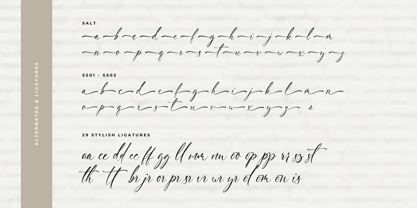 ALTERNATES & LIGATURES
SALT
a b c d e f g h i j k l m
n o p q r s t u v w x y z
SS01 - SS02
a b c d e f g h i j k l m n
o p q r s t u v w x y z
29 STYLISH LIGATURES
aa cc dd ee ff gg ll mm nn oo op pp rr ss st
th tt br jr or pr sr vr wr yr of om on is